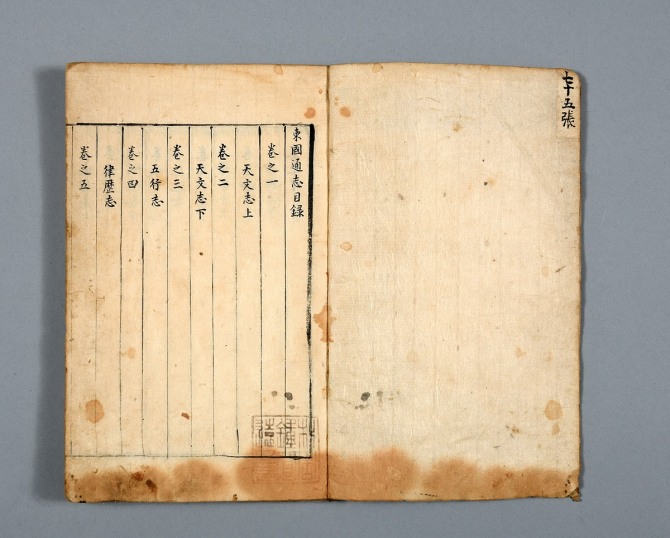 七十五張
東國通志目錄
卷之一
天文志上
卷之二
天文志下
卷之三
五行志
卷之四
律歷志
卷之五